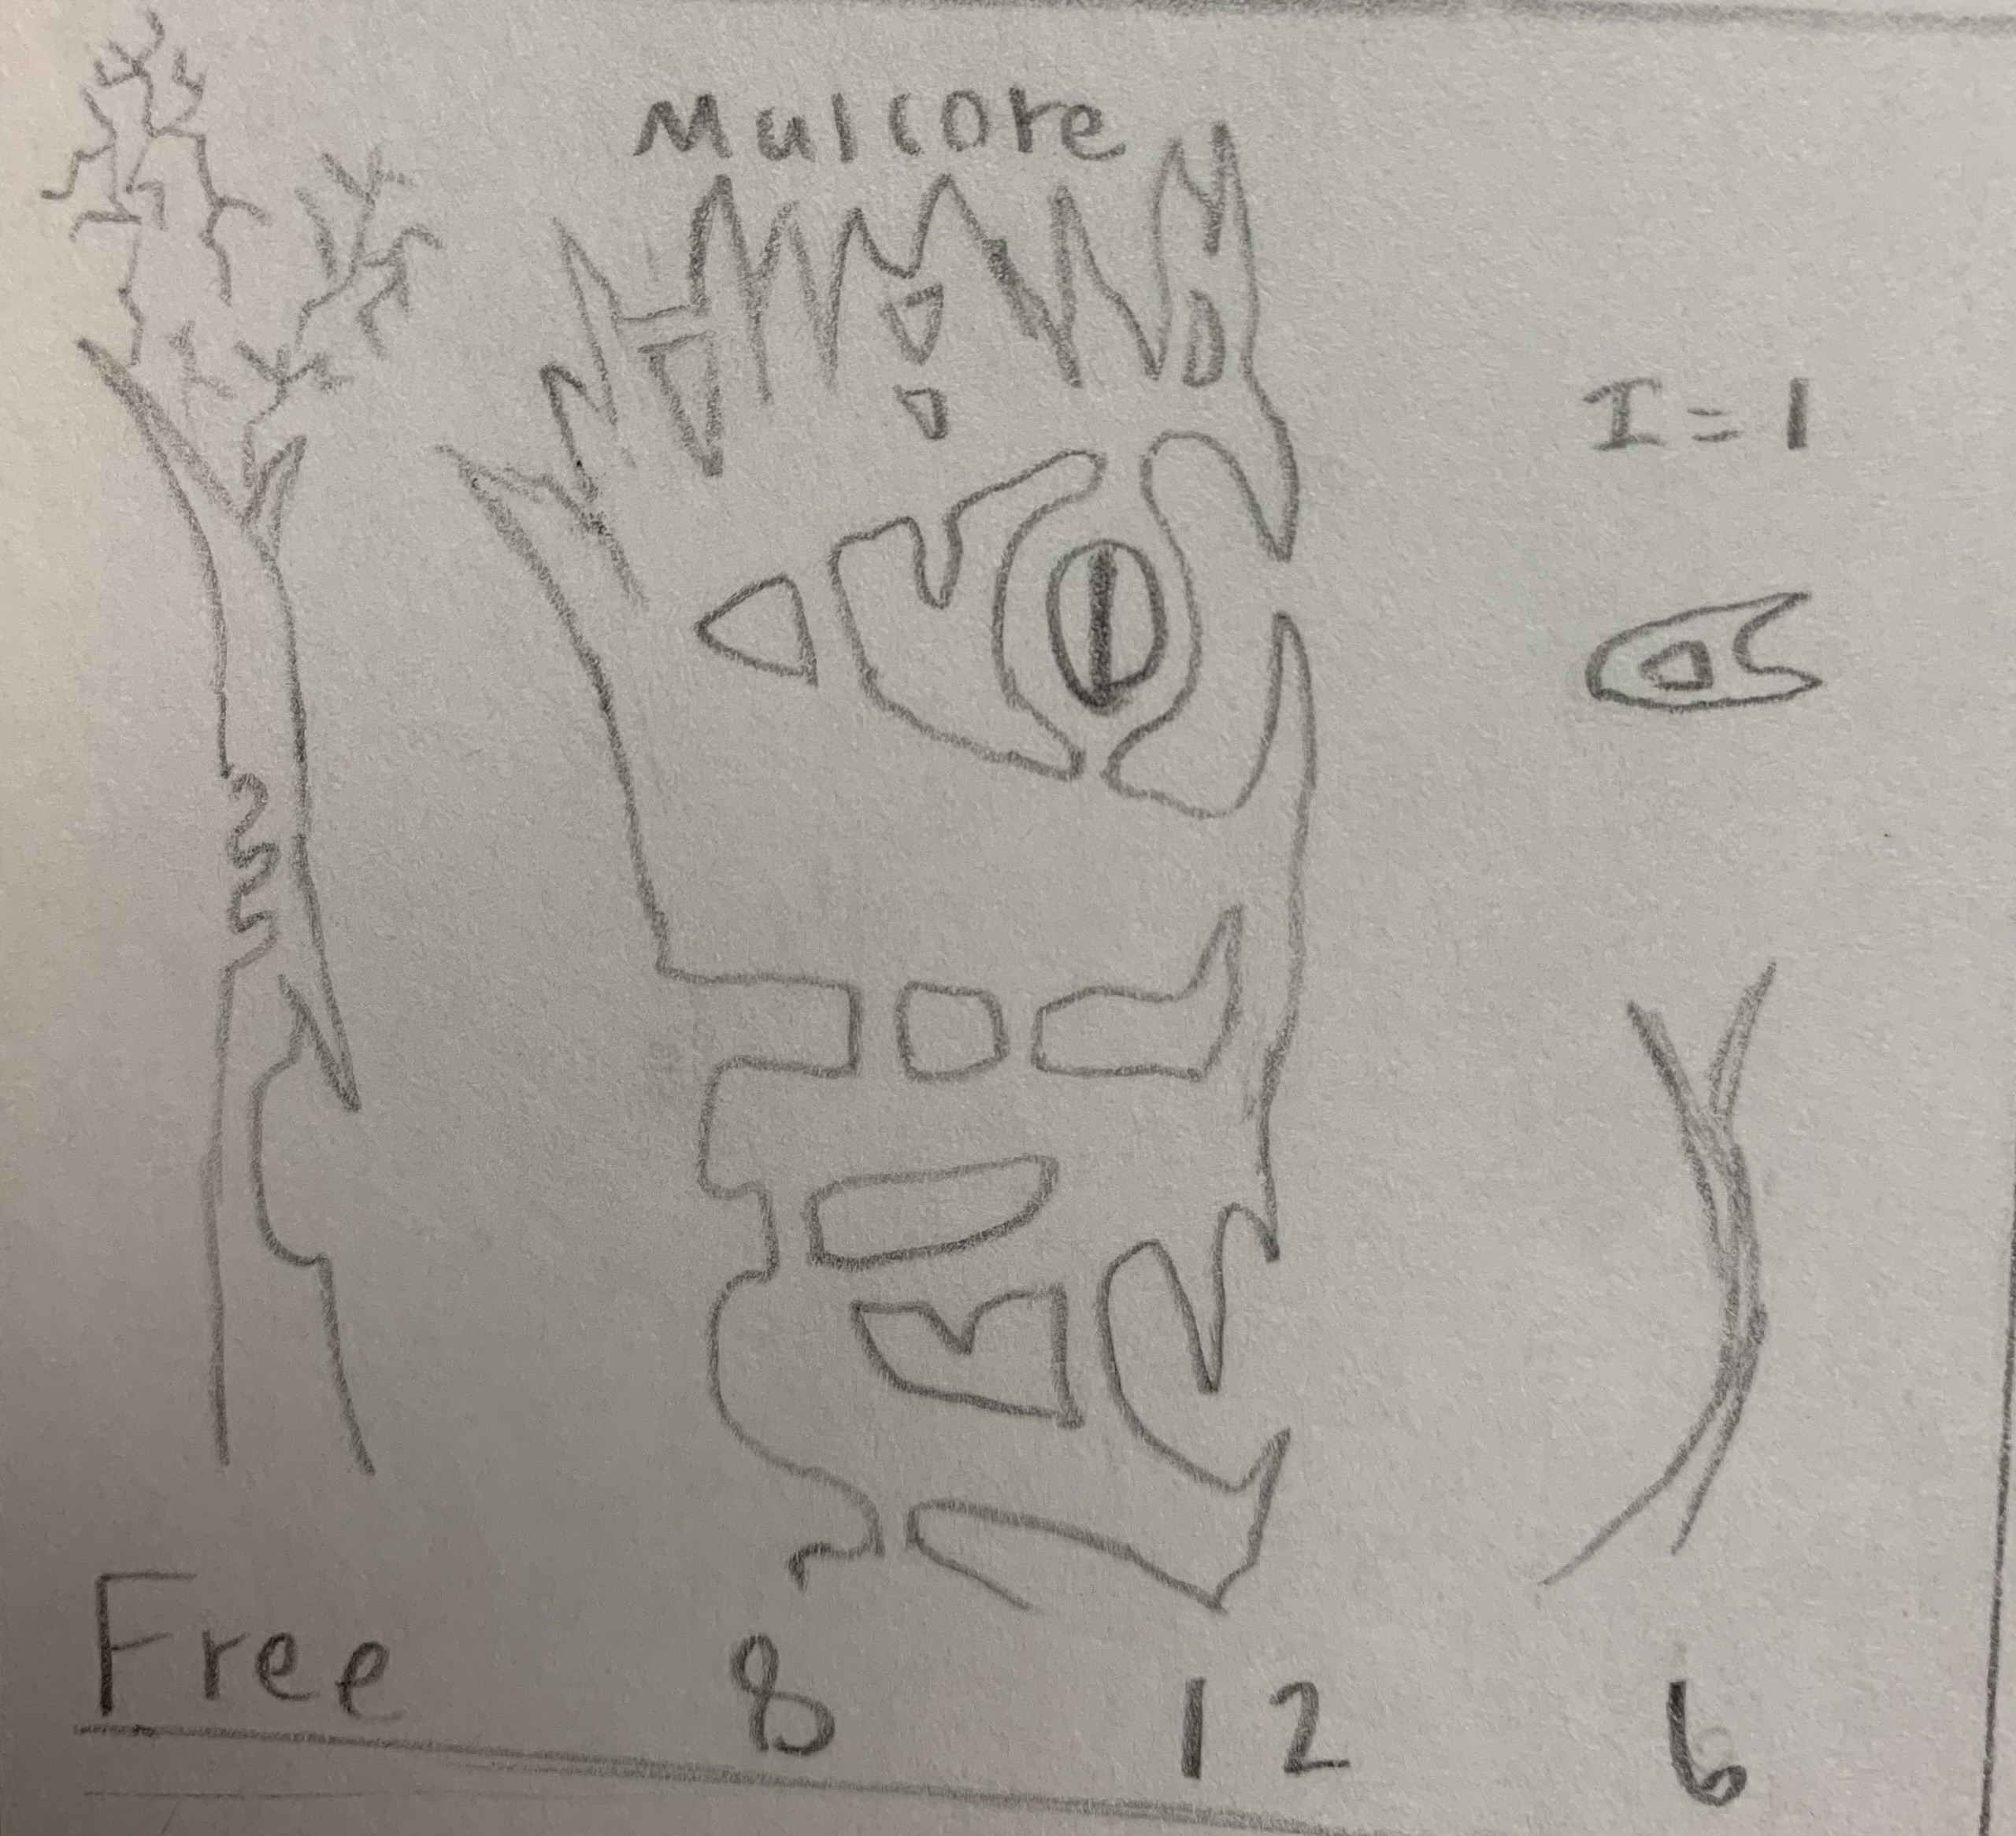 Mulcore
I = 1
Free 8 12 6